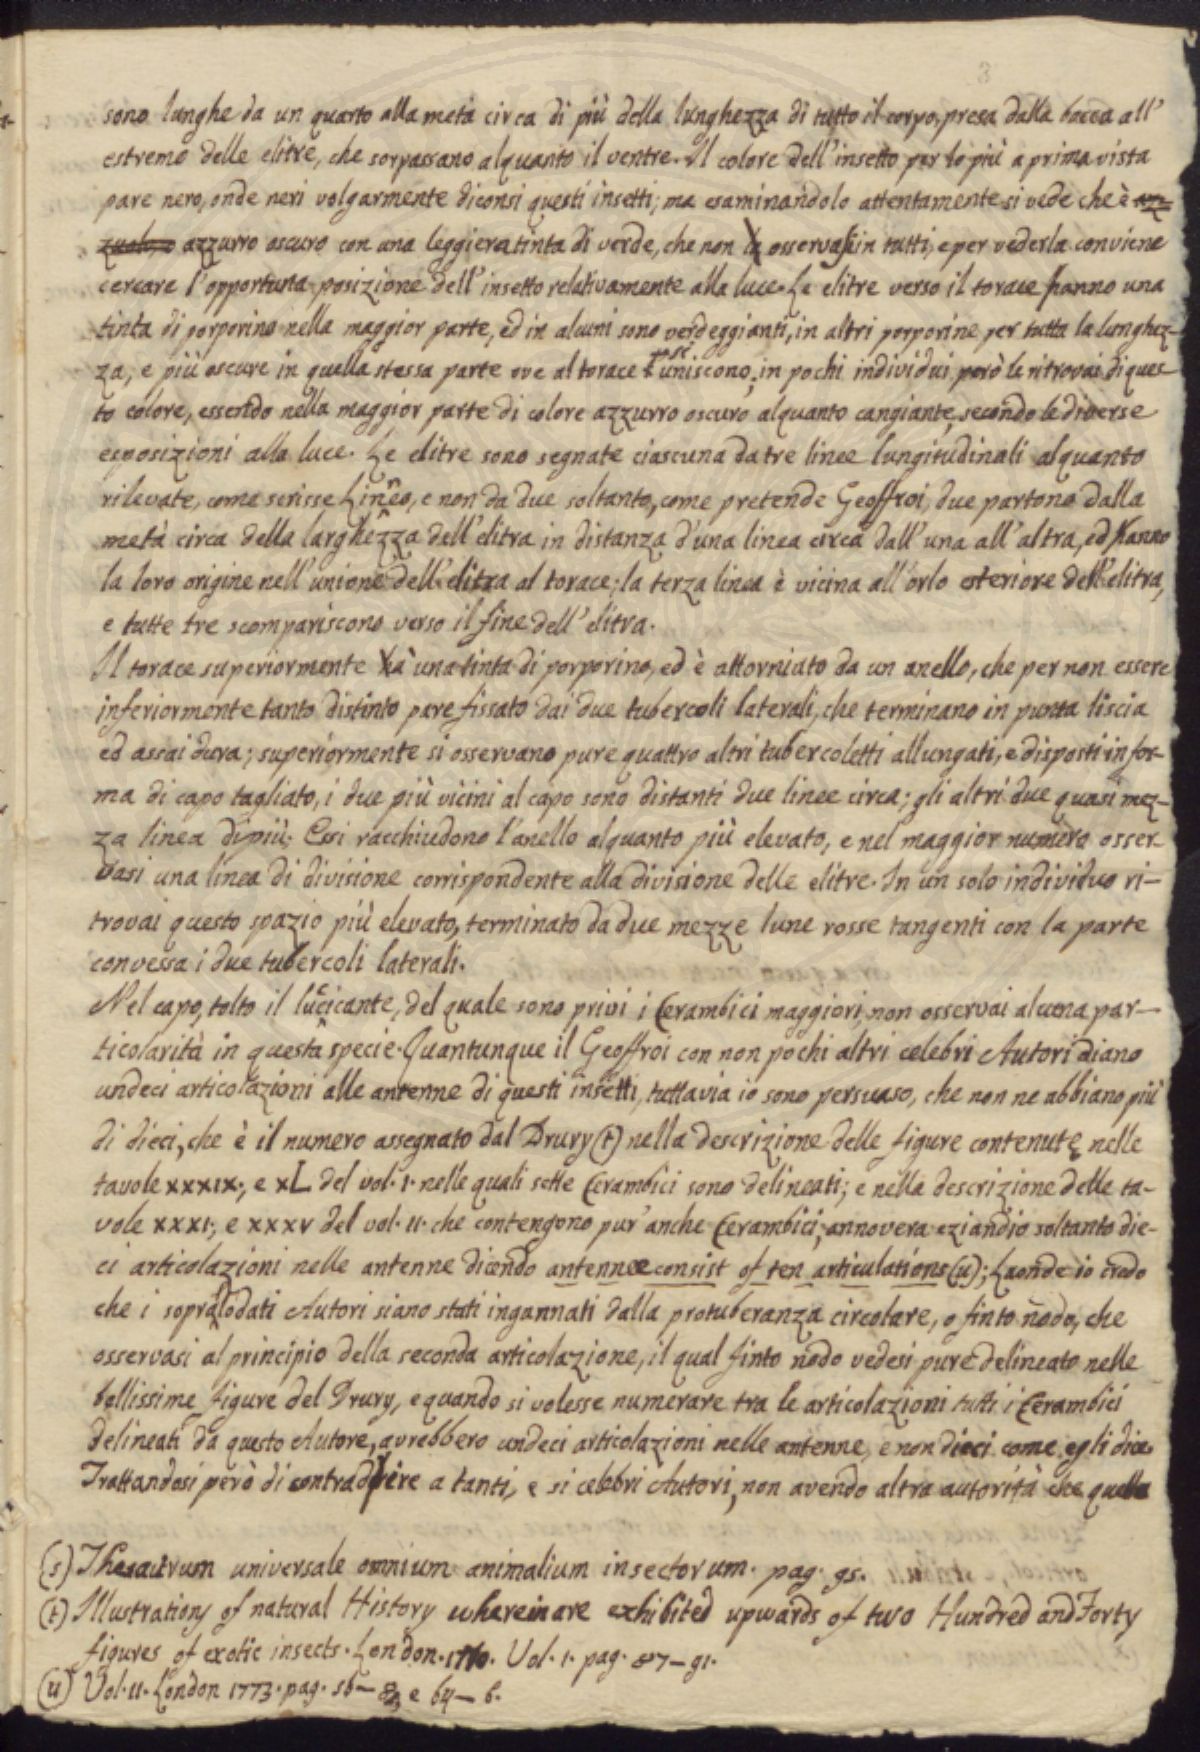 3
sono lunghe da un quarto alla metà circa di più della lunghezza di tutto il corpo, presa dalla bocca all'
estremo delle elitre, che sorpassano alquanto il ventre. Il colore dell'insetto per lo più a prima vista
pare nero, onde neri volgarmente diconsi questi insetti; ma esaminandolo attentamente si vede che è
azzurro oscuro con una leggiera tinta di verde, che non osservasi in tutti, e per vederla conviene
cercare l'opportuna posizione dell'insetto relativamente alla luce. Le elitre verso il torace hanno una
tinta di porporino nella maggior parte, ed in alcuni sono verdeggianti, in altri porporine per tutta la lunghez-
za, e più oscure in quella stessa parte ove al torace s'uniscono; in pochi individui però le ritrovai di ques
to colore, essendo nella maggior parte di colore azzurro oscuro alquanto cangiante, secondo le diverse
esposizioni alla luce. Le elitre sono segnate ciascuna da tre linee lungitudinali alquanto
rilevate, come scrisse Linneo, e non da due soltanto, come pretende Geoffroi, due partono dalla
metà circa della larghezza dell'elitra in distanza d'una linea circa dall'una all'altra, ed hanno
la loro origine nell'unione dell'elitra al torace; la terza linea è vicina all'orlo esteriore dell'elitra,
e tutte tre scompariscono verso il fine dell'elitra.
Il torace superiormente ha una tinta di porporino, ed è attorniato da un anello, che per non essere
inferiormente tanto distinto pare fissato dai due tubercoli laterali, che terminano in punta liscia
ed assai dura; superiormente si osservano pure quattro altri tubercoletti allungati, e disposti in for-
ma di capo tagliato, i due più vicini al capo sono distanti due linee circa; gli altri due quasi mez-
za linea di più; Essi racchiudono l'anello alquanto più elevato, e nel maggior numero osser-
vasi una linea di divisione corrispondente alla divisione delle elitre. In un solo individuo ri-
trovai questo spazio più elevato, terminato da due mezze lune rosse tangenti con la parte
convessa i due tubercoli laterali.
Nel capo, tolto il lucicante, del quale sono privi i Cerambici maggiori, non osservai alcuna par-
ticolarità in questa specie. Quantunque il Geoffroi con non pochi altri celebri Autori diano
undeci articolazioni alle antenne di questi insetti, tuttavia io sono persuaso, che non ne abbiano più
di dieci, che è il numero assegnato dal Drury (t) nella descrizione delle figure contenute nelle
tavole xxxix., e xL del vol. I. nelle quali sette Cerambici sono delineati; e nella descrizione delle ta-
vole xxxI, e xxxv del vol. II. che contengono pur'anche Cerambici, annovera eziandio soltanto die-
ci articolazioni nelle antenne dicendo antennæ consist of ten articulations (u); Laonde io credo
che i sopralodati Autori siano stati ingannati dalla protuberanza circolare, o finto nodo, che
osservasi al principio della seconda articolazione, il qual finto nodo vedesi pure delineato nelle
bellissime figure del Drury, e quando si volesse numerare tra le articolazioni tutti i Cerambici
delineati da questo Autore, avrebbero undeci articolazioni nelle antenne, e non dieci come egli dice.
Trattandosi però di contraddire a tanti, e si celebri Autori, non avendo altra autorità che quella
(s) Theatrum universale omnium animalium insectorum. pag. 95.
(t) Illustrations of natural History wherein are exhibited upwards of two Hundred and Forty
figures of exotic insects. London. 1770. Vol. I. pag. 87-91.
(u) Vol. II. London 1773. pag.